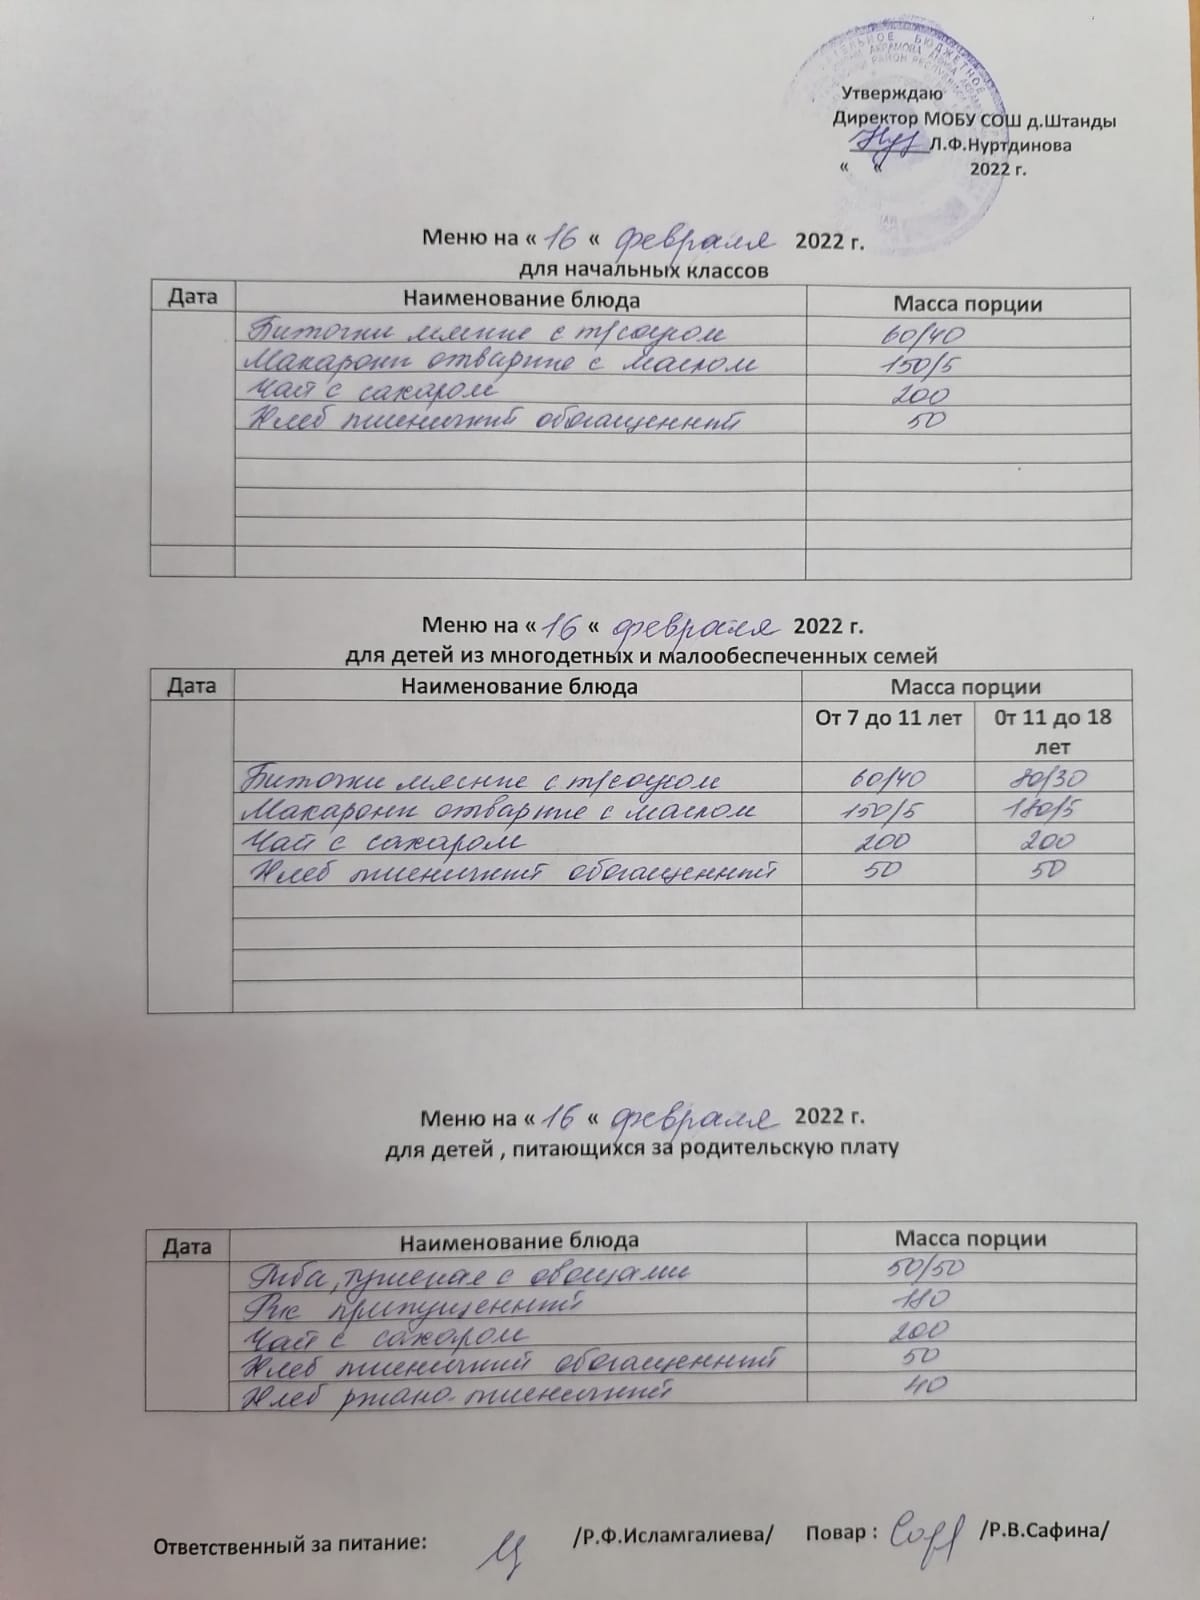 ТЕЛЬНОЕ БЮДЖЕТНОЕ
Утверждаю
Директор МОБУ СОШ д.Штанды
Л.Ф.Нуртдинова
« « 2022 г.
Меню на « 16 « февраля 2022 г.
для начальных классов
Дата Наименование блюда Масса порции
Биточки мясные с т/соусом 60/40
Макароны отварные с маслом 150/5
Чай с сахаром 200
Хлеб пшеничный обогащенный 50
Меню на « 16 « февраля 2022 г.
для детей из многодетных и малообеспеченных семей
Дата Наименование блюда Масса порции
От 7 до 11 лет 0т 11 до 18
лет
Биточки мясные с т/соусом 60/40 80/30
Макароны отварные с маслом 150/5 180/5
Чай с сахаром 200 200
Хлеб пшеничный обогащенный 50 50
Меню на « 16 « февраля 2022 г.
для детей , питающихся за родительскую плату
Дата Наименование блюда Масса порции
Рыба, тушеная с овощами 50/50
Рис припущенный 180
Чай с сахаром 200
Хлеб пшеничный обогащенный 50
Хлеб ржано-пшеничный 40
Ответственный за питание: /Р.Ф.Исламгалиева/ Повар : /Р.В.Сафина/